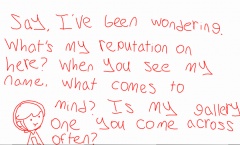 Say, I've been wondering.
What's my reputation on
here? When you see my
name. What comes to
mind? Is my gallery
one you come across
often?